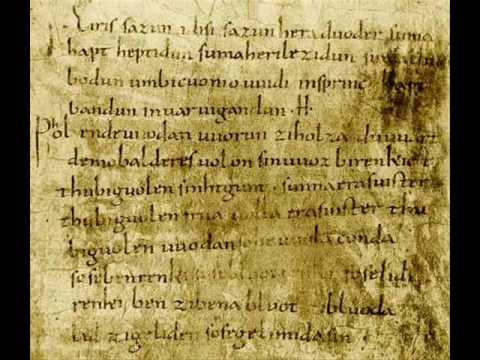 Eiris sazun idisi sazun hera duoder suma
hapt heptidun sumaherilezidun sumaclu
bodun umbicuonio uuidi insprinc hapt
bandun inuar uigandun · H ·
Phol endeuuodan uuorun ziholza du uuart
demobalderes uolon sinuuoz birenkict
thubiguolen sinhtgunt · sunnaerasuister
thubiguolen friia uolla erasuister thu
biguolen uuodan sohe uuola conda
sosebenrenki soselidi
renki ben zibena bluot zibluoda
lid zigeliden sosegelimida sin